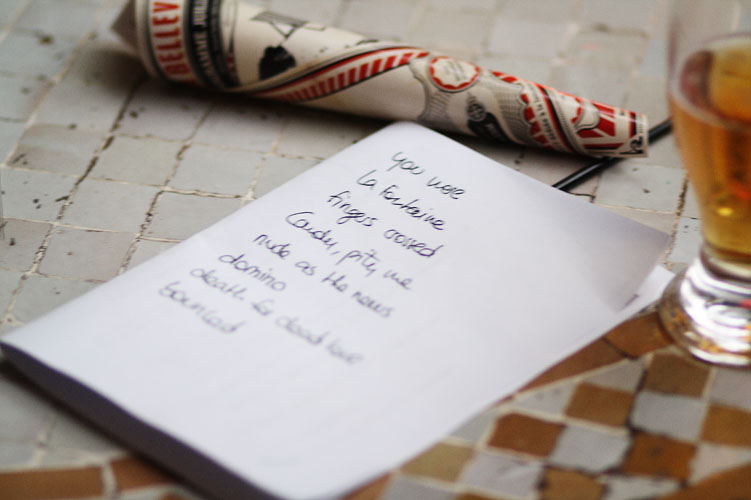 BELLEV
AMME JUIL
you were
la fontaine
fingers crossed
pity me
nude as the news
domino
death for dead love